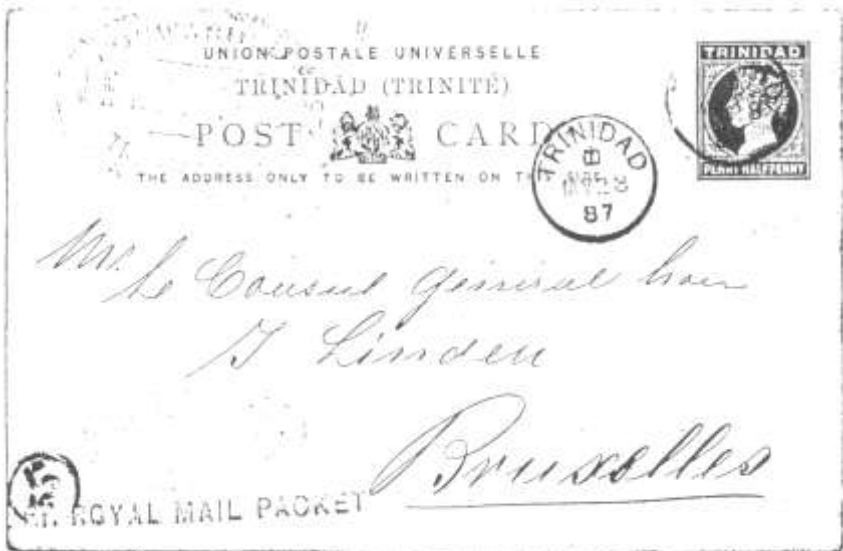 UNION POSTALE UNIVERSELLE
TRINIDAD (TRINITÉ)
POST CARD
THE ADDRESS ONLY TO BE WRITTEN ON TH
TRINIDAD
PENNY HALFPENNY
TRINIDAD
87
Mr. Le Consul General
J Linden
Bruxelles
ROYAL MAIL PACKET